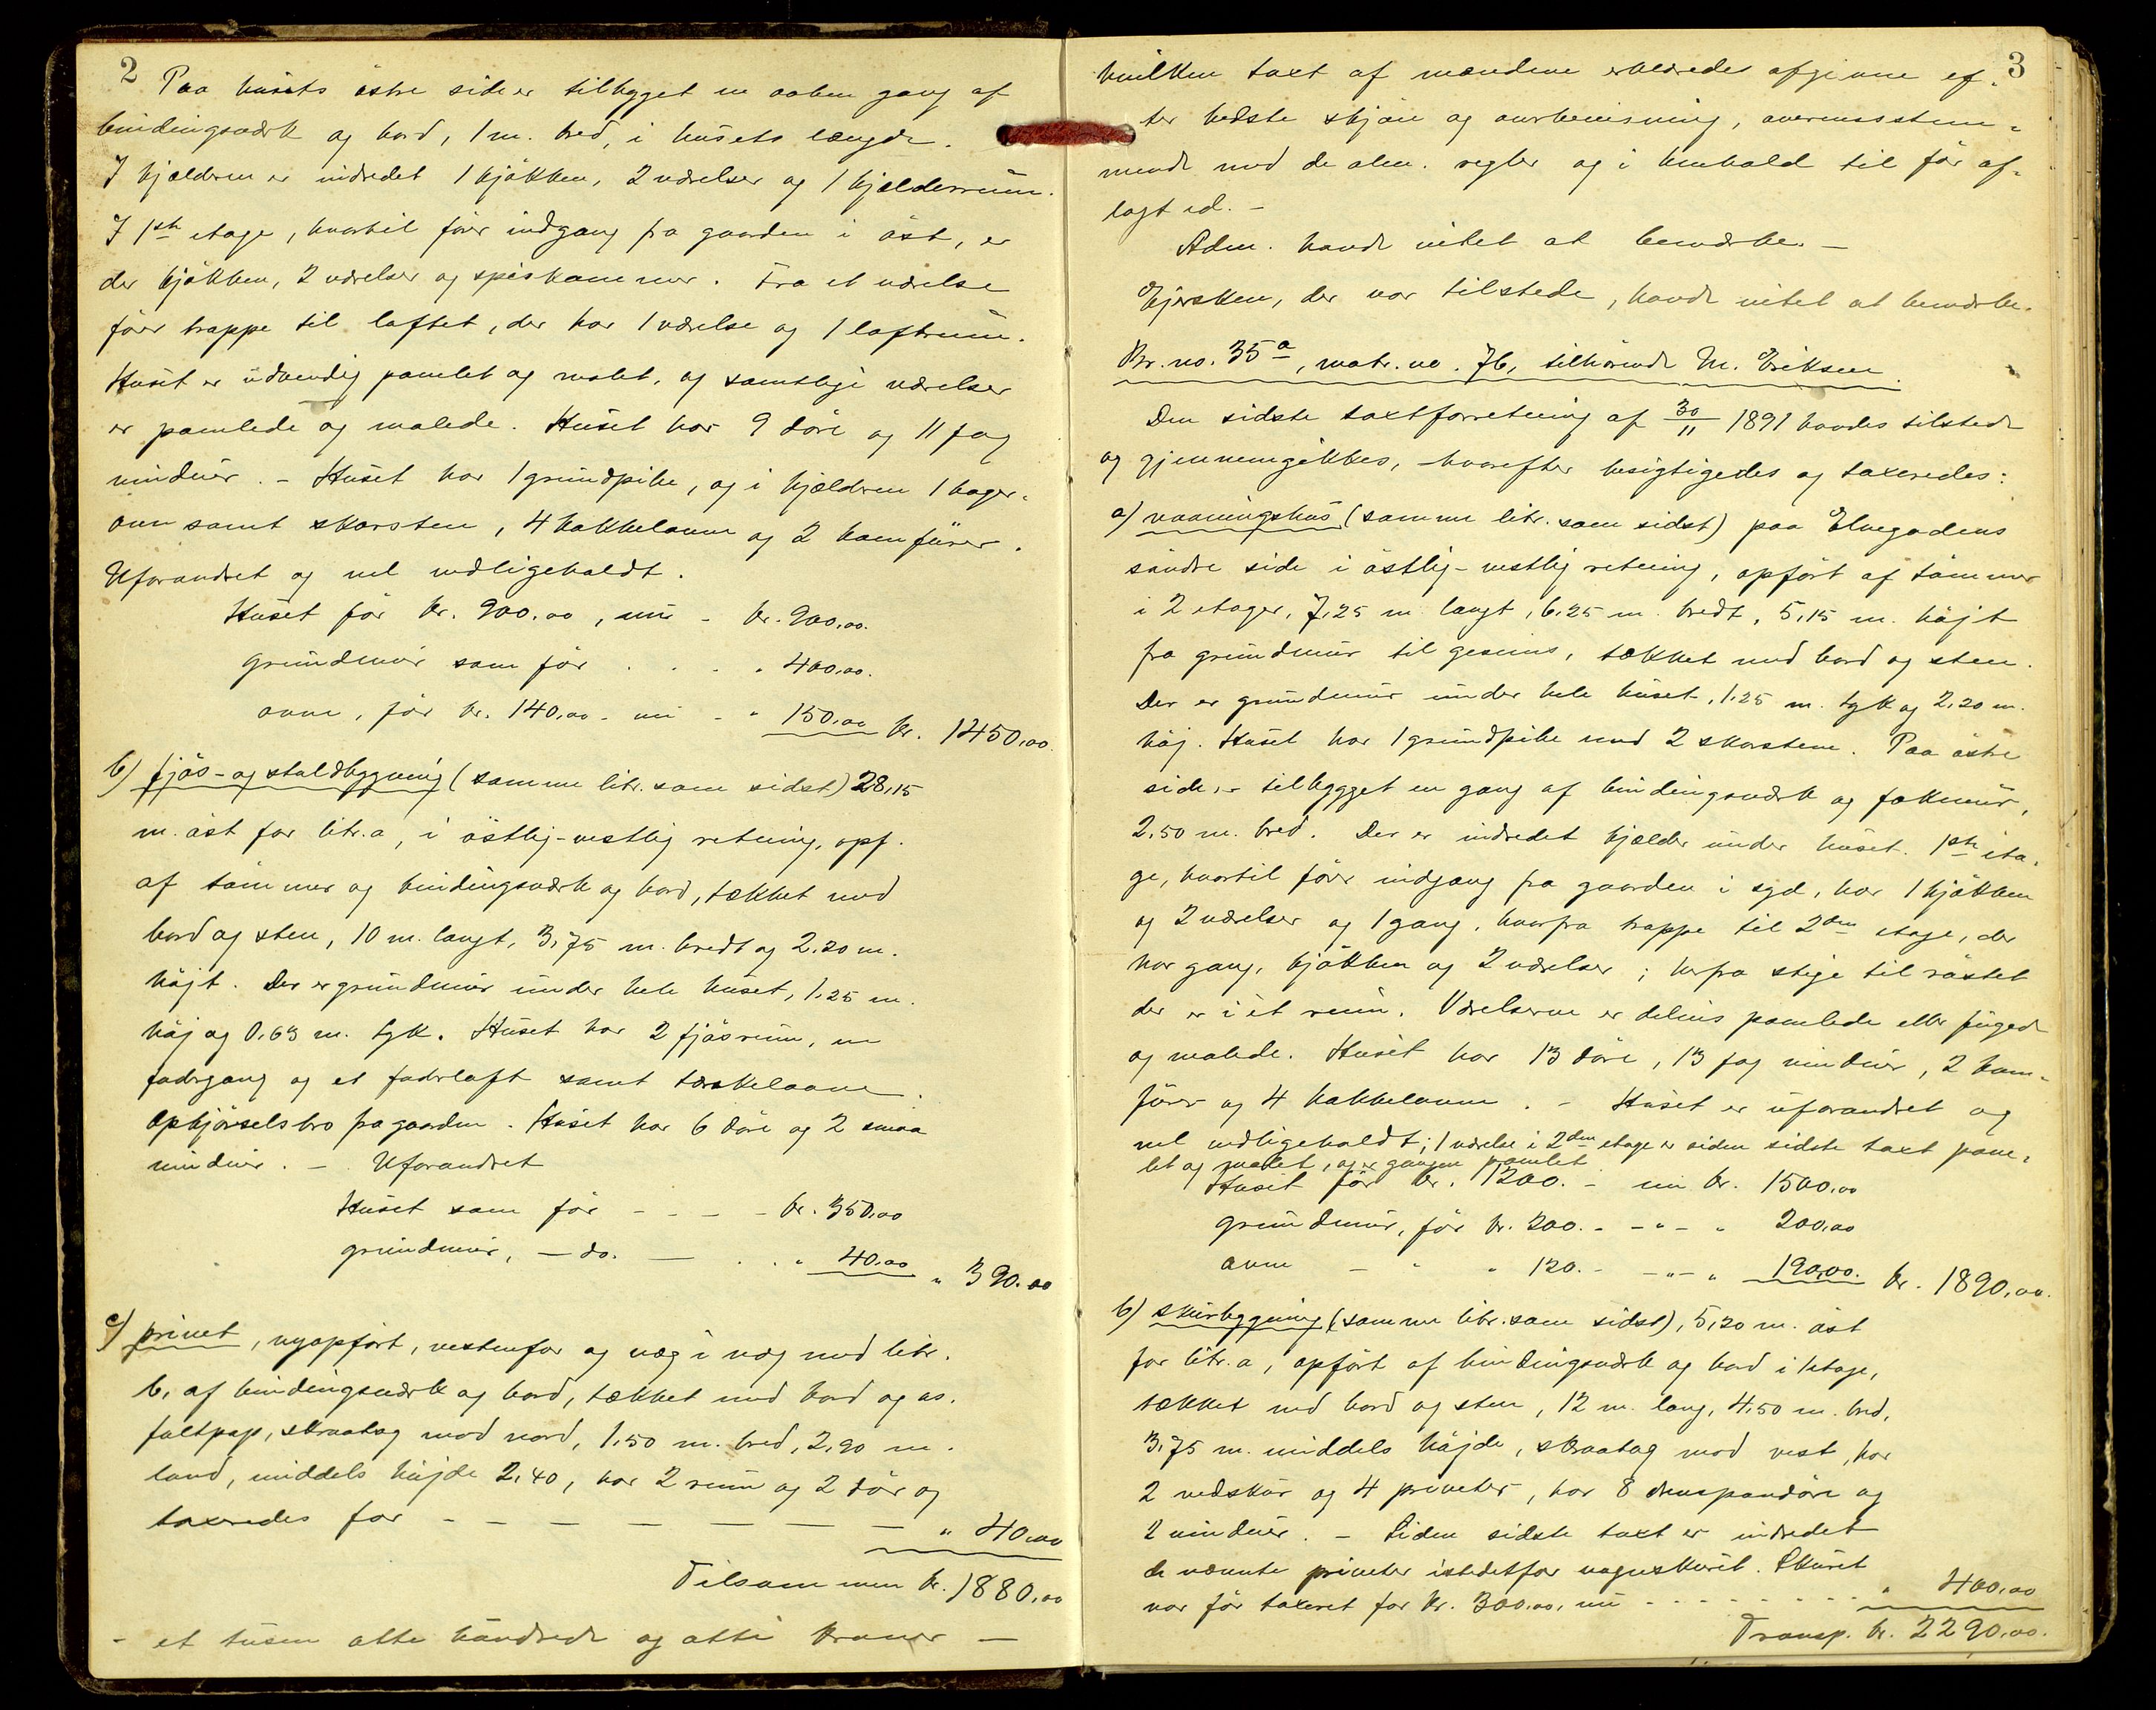 2
Paa husets östre side er tilbygget en aaben gang af
bindingsværk og bord, 1 m. bred, i husets længde.
I kjælderen er indredet 1 kjökken, 2 værelser og 1 kjælderrum.
I 1ste etage, hvortil förer indgang fra gaarden i öst, er
der kjökken, 2 værelser og spiskammer. Fra et værelse
förer trappe til loftet, der har 1 værelse og 1 loftrum.
Huset er udvendig panelet og malet, og samtlige værelser
er panelede og malede. Huset har 9 döre og 11 fag
vinduer. - Huset har 1 grundpibe, og i kjælderen 1 bager-
ovn samt skorsten, 4 kakkelovne og 2 komfürer.
Uforandret og vel vedligeholdt.
Huset för kr. 900,00, nu - kr. 900,00.
grundmur som för . . . " 400,00.
ovne, för kr. 140,00 - nu - " 150,00 kr. 1450,00.
b) fjös- og staldbygning (samme litr. som sidst) 28,15
m. öst for litr. a, i östlig-vestlig retning, opf.
af tömmer og bindingsværk og bord, tækket med
bord og sten, 10 m. langt, 3,75 m. bredt og 2,20 m.
höjt. Der er grundmur under hele huset, 1,25 m.
höj og 0,63 m. tyk. Huset har 2 fjösrum, en
fodergang og et foderloft samt tærskelaave.
Opkjörselsbro fra gaarden. Huset har 6 döre og 2 smaa
vinduer. - Uforandret
Huset som för - - - - kr. 350,00
grundmur, - do. - . . " 40,00 " 390,00
c) privet, nyopfört, vestenfor og væg i væg med litr.
b, af bindingsværk og bord, tækket med bord og as-
faltpap, skraatag mod nord, 1,50 m. bred, 2,90 m.
land, middels höjde 2,40, har 2 rum og 2 dör og
taxeredes for - - - - - - - " 40,00
Tilsammen kr. 1880,00
- et tusen otte hundrede og otti kroner -
3
hvilken taxt af mændene erklæredes afgivne ef-
ter bedste skjön og overbevisning, overensstem-
mende med de alm. regler og i henhold til för af-
lagt ed. -
Adm. havde intet at bemærke. -
Ejersken, der var tilstede, havde intet at bemærke.
Br. no. 35a, matr. no. 76, tilhörende M. Eriksen.
Den sidste taxtforretning af 30/11 1891 havdes tilstede
og gjennemgikkes, hvorefter besigtigedes og taxeredes:
a) vaaningshus (samme litr. som sidst) paa Elvegadens
söndre side i östlig-vestlig retning, opfört af tömmer
i 2 etager, 7,25 m. langt, 6,25 m. bredt, 5,15 m. höjt
fra grundmur til gesims, tækket med bord og sten.
Der er grundmur under hele huset, 1,25 m. tyk og 2,20 m.
höj. Huset har 1 grundpibe med 2 skorstene. Paa östre
side er tilbygget en gang af bindingsværk og fakmur,
2,50 m. bred. Der er indredet kjælder under huset. 1ste eta-
ge, hvortil förer indgang fra gaarden i syd, har 1 kjökken
og 2 værelser og 1 gang, hvorfra trappe til 2den etage, der
har gang, kjökken og 2 værelser; herfra stige til röstet
der er i ét rum. Værelserne er delvis panelede eller fugede
og malede. Huset har 13 döre, 13 fag vinduer, 2 kom-
fürer og 4 kakkelovne. - Huset er uforandret og
vel vedligeholdt; 1 værelse i 2den etage er siden sidste taxt pane-
let og malet, og er gangen panelet.
Huset för kr. 1200. - nu kr. 1500,00
grundmur, för kr. 200. - - " - " 200,00
ovne - " " 120. - - " - " 190,00. kr. 1890,00.
b) skurbygning (samme litr. som sidst), 5,20 m. öst
for litr. a, opfört af bindingsværk og bord i 1 etage,
tækket med bord og sten, 12 m. lang, 4,50 m. bred,
3,75 m. middels höjde, skraatag mod vest, har
2 vedskur og 4 priveter, har 8 döre og
2 vinduer. - Siden sidste taxt er indredet
de nævnte priveter istedetfor vognskuret. Skuret
var för taxeret for kr. 300,00, nu - - - - - - - " 400,00
Transp. kr. 2290,00.